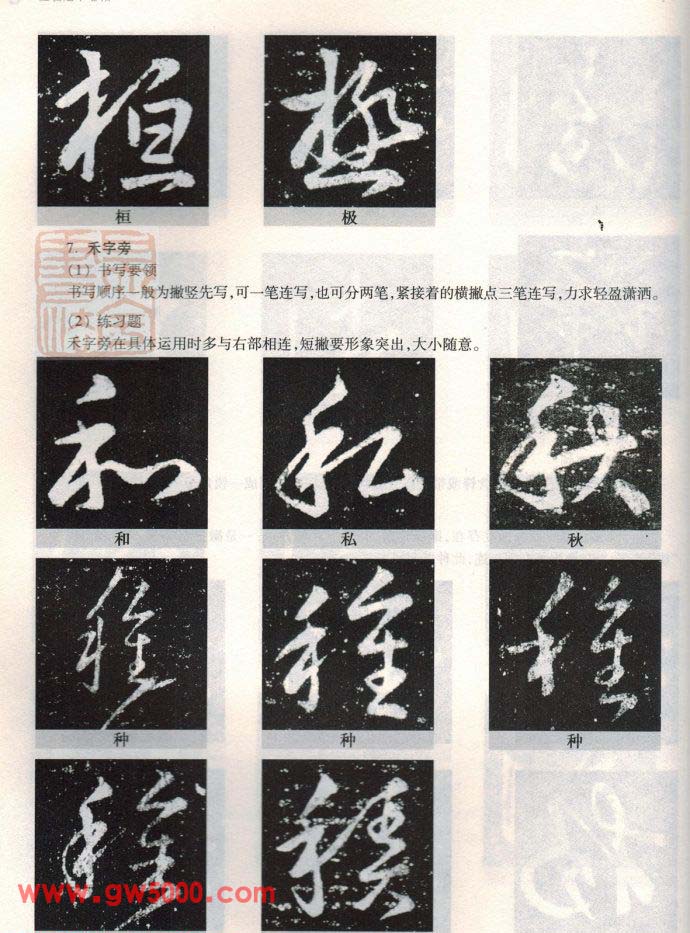 桓 极
7. 禾字旁
(1) 书写要领
书写顺序一般为撇竖先写,可一笔连写,也可分两笔,紧接着的横撇点三笔连写,力求轻盈潇洒。
(2) 练习题
禾字旁在具体运用时多与右部相连,短撇要形象突出,大小随意。
和 私 秋
种 种 种
www.gw5000.com